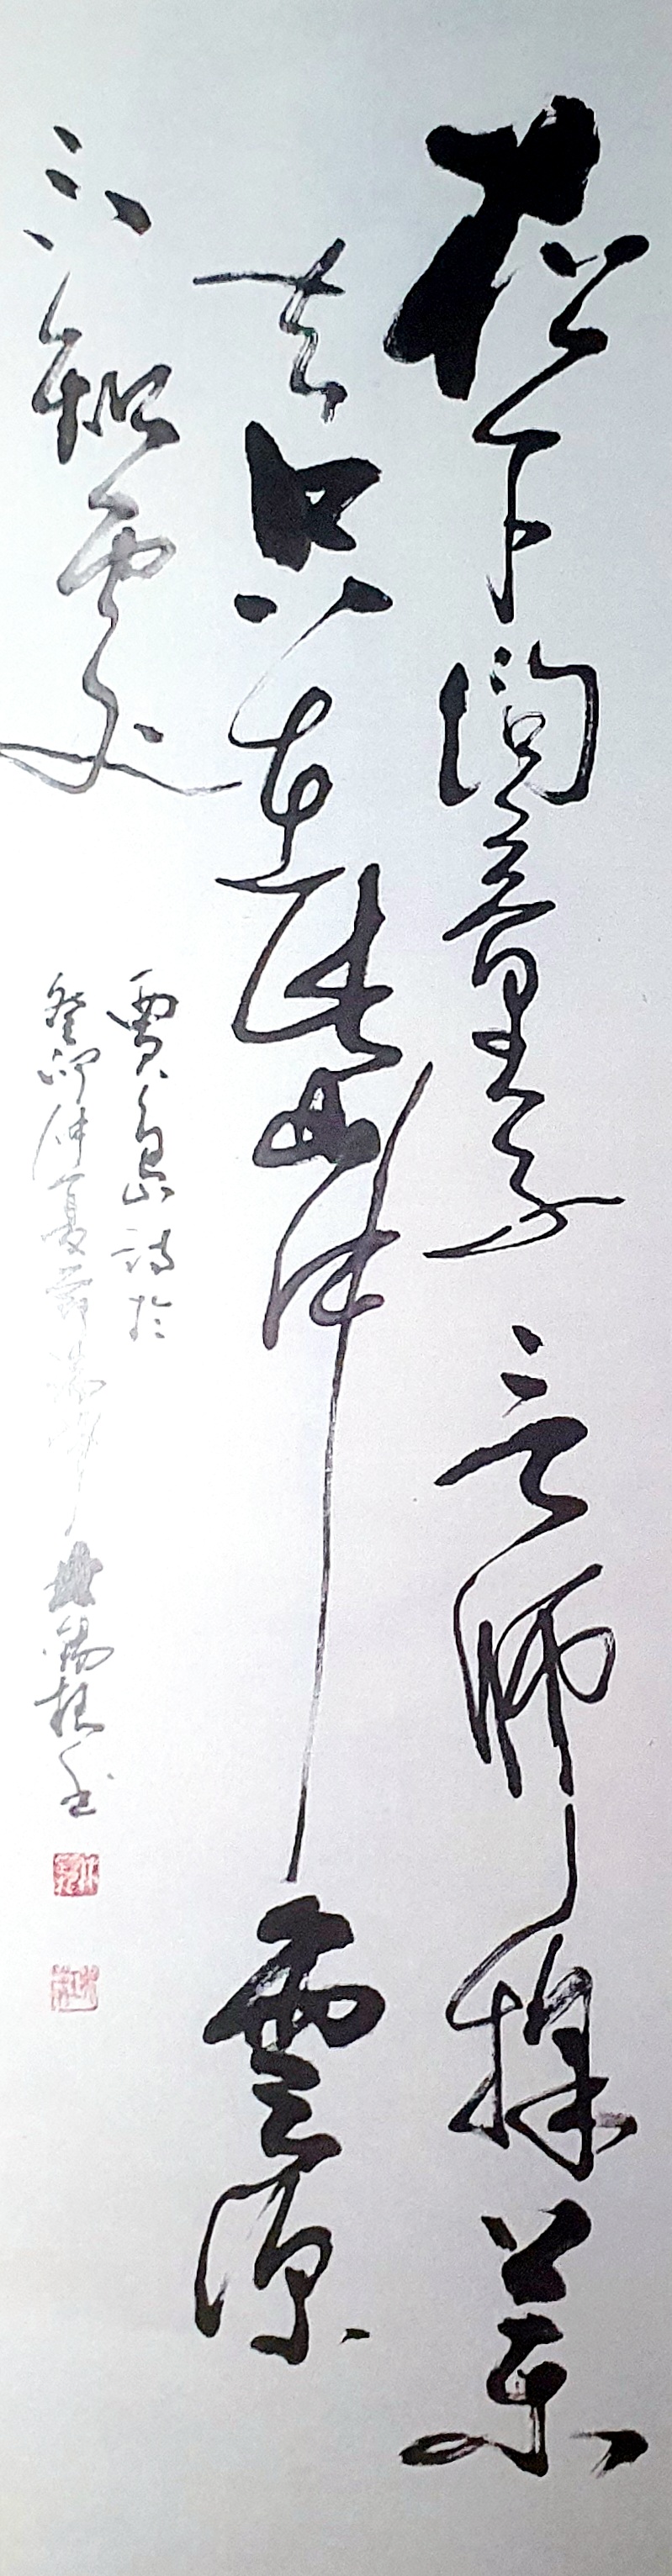 松下問童子言師採藥
去只在此山中雲深
不知處
賈島詩於
癸卯仲夏